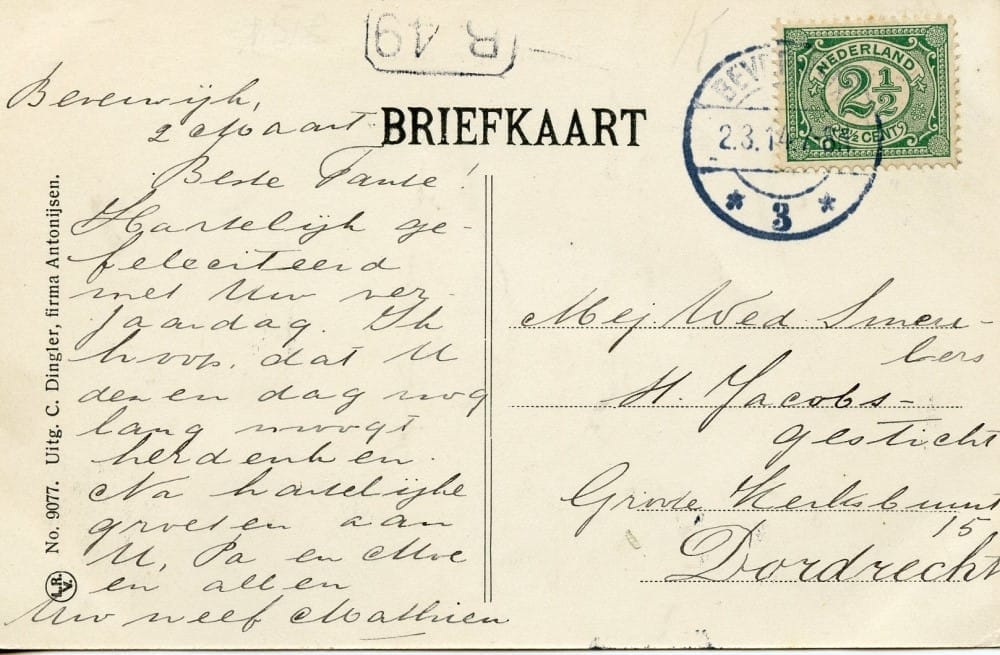 R 49
Beverwijk,
2 Maart
BRIEFKAART
Beste Tante!
Hartelijk ge-
feleciteerd
met Uw ver-
jaardag. Ik
hoop, dat U
dezen dag nog
lang moogt
herdenken.
Na hartelijke
groeten aan
U, Pa en Moe
en allen
Uw neef Mathieu
No. 9077. Uitg. C. Dingler, firma Antonijsen.
L.R.
V.
NEDERLAND
2½
(2½ CENT)
BEVE
2.3.14
* 3 *
Mej. Wed Smeu-
lers
St. Jacobs-
gesticht
Groote Kerksbuurt
15
Dordrecht